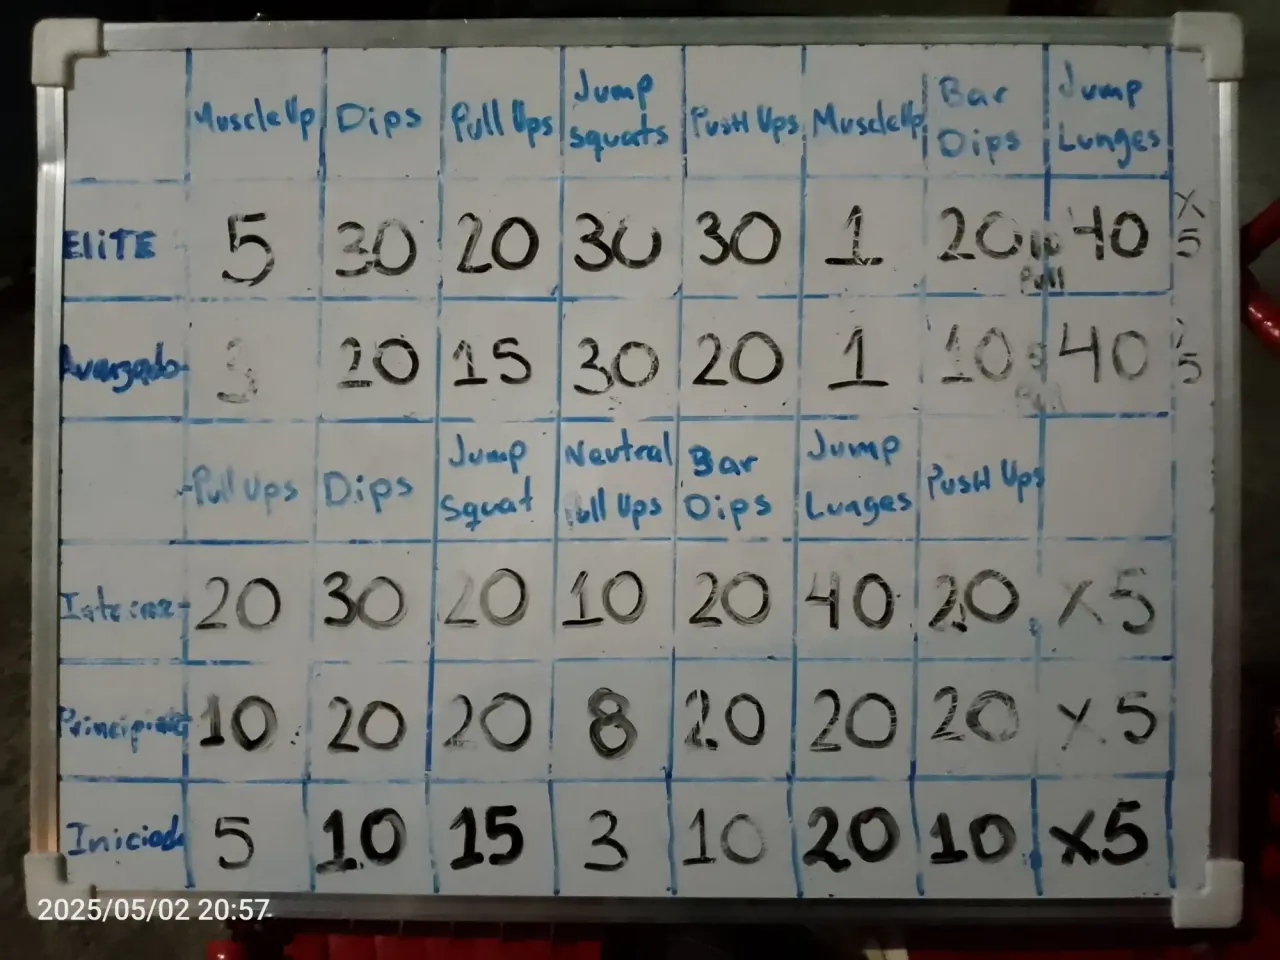 MuscleUp Dips Pull Ups Jump Squats PusH Ups MuscleUp Bar Dips Jump Lunges
ELiTE 5 30 20 30 30 1 20 Pull 40 x 5
Avanzado 3 20 15 30 20 1 10 40 5
Pull Ups Dips Jump Squat Neutral Pull Ups Bar Dips Jump Lunges PusH Ups
20 30 20 10 20 40 20 x5
10 20 20 8 20 20 20 x5
Iniciado 5 10 15 3 10 20 10 x5
2025/05/02 20:57